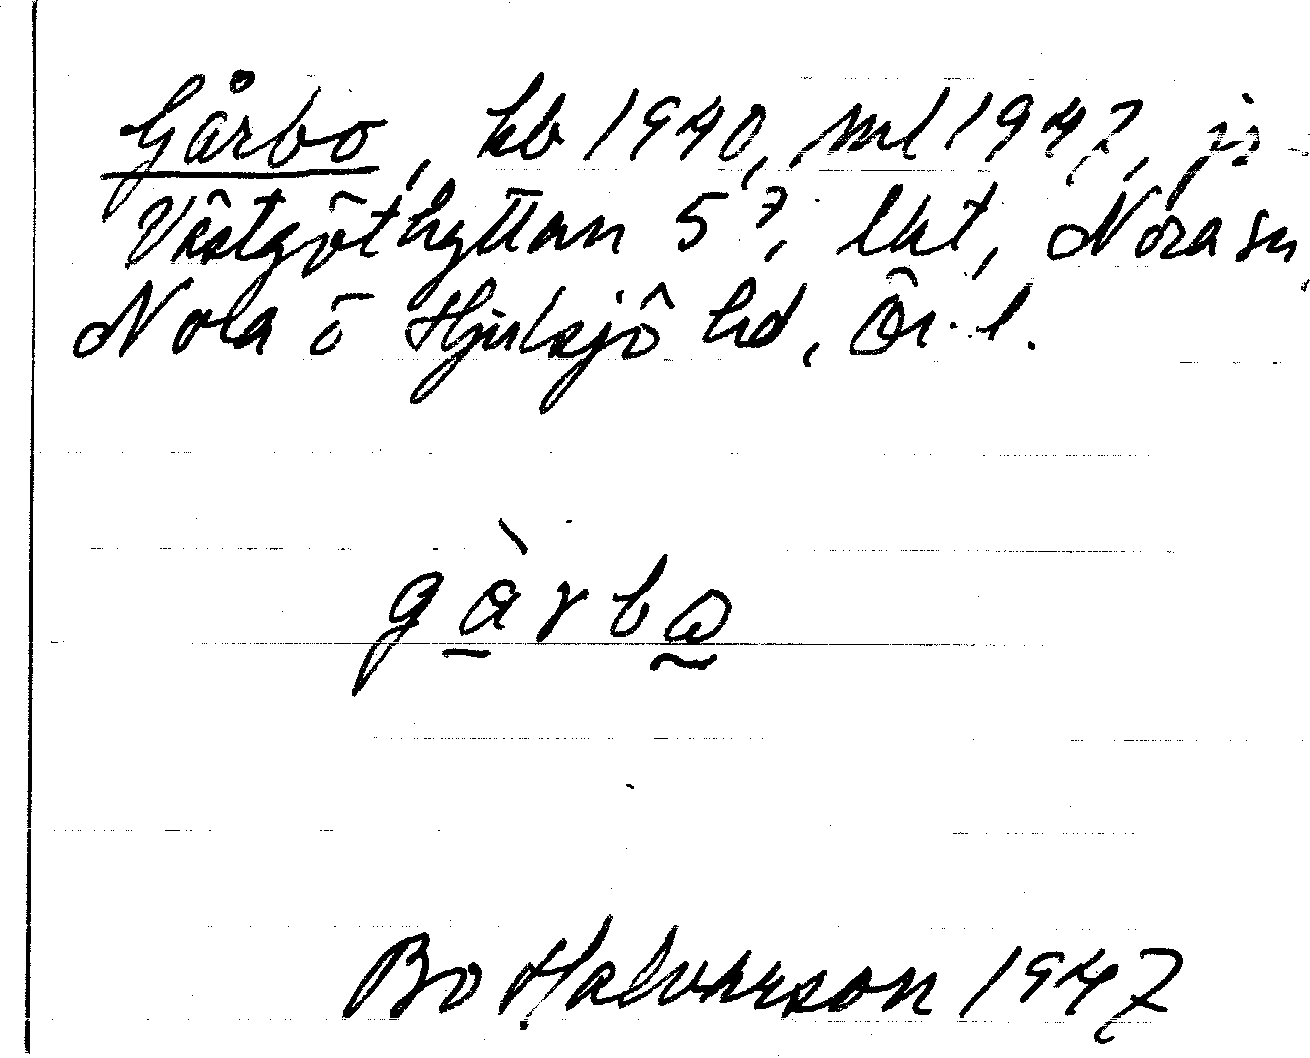 Gårbo, kb 1940, ml 1947, js
Västgöthyttan 5⁷, lht, Nora sn,
Nora ō Hjulsjö hd, Ör. l.
gàrbo
Bo Halvarsson 1947